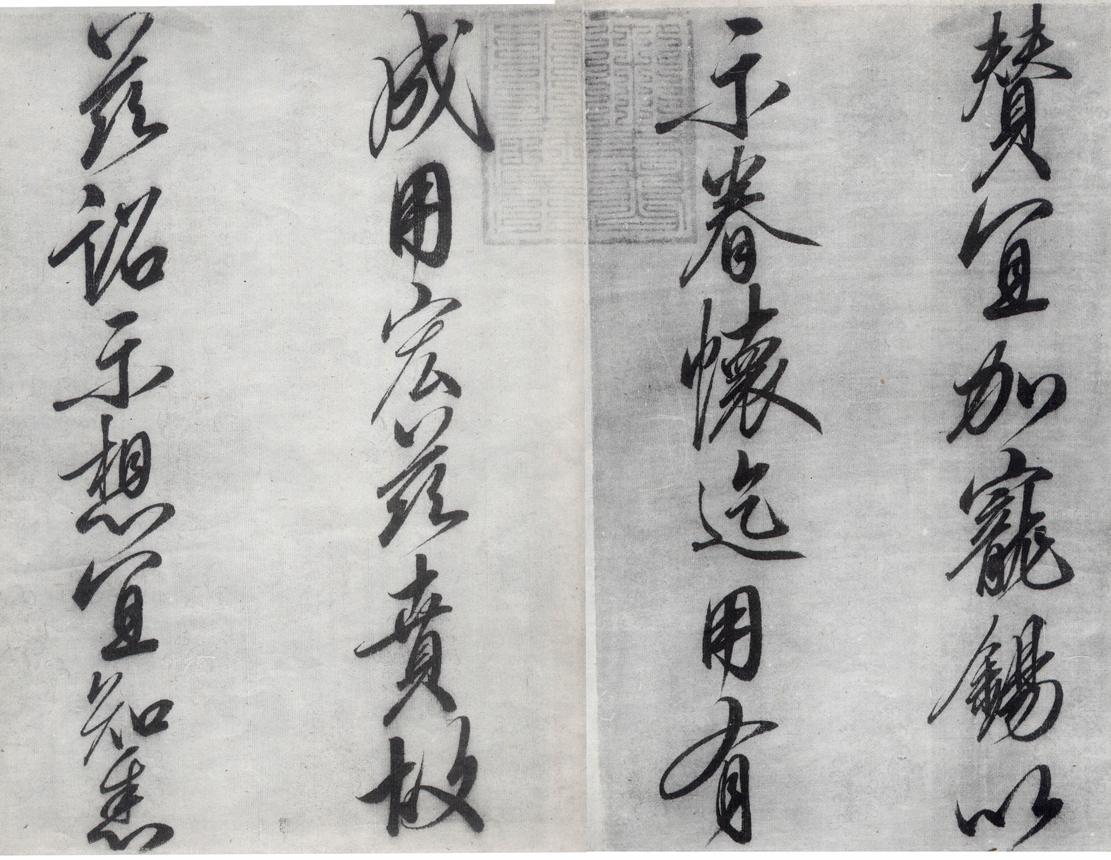 賛宜加寵錫以
示眷懐迄用有
成用宏茲賁故
茲詔示想宜知悉